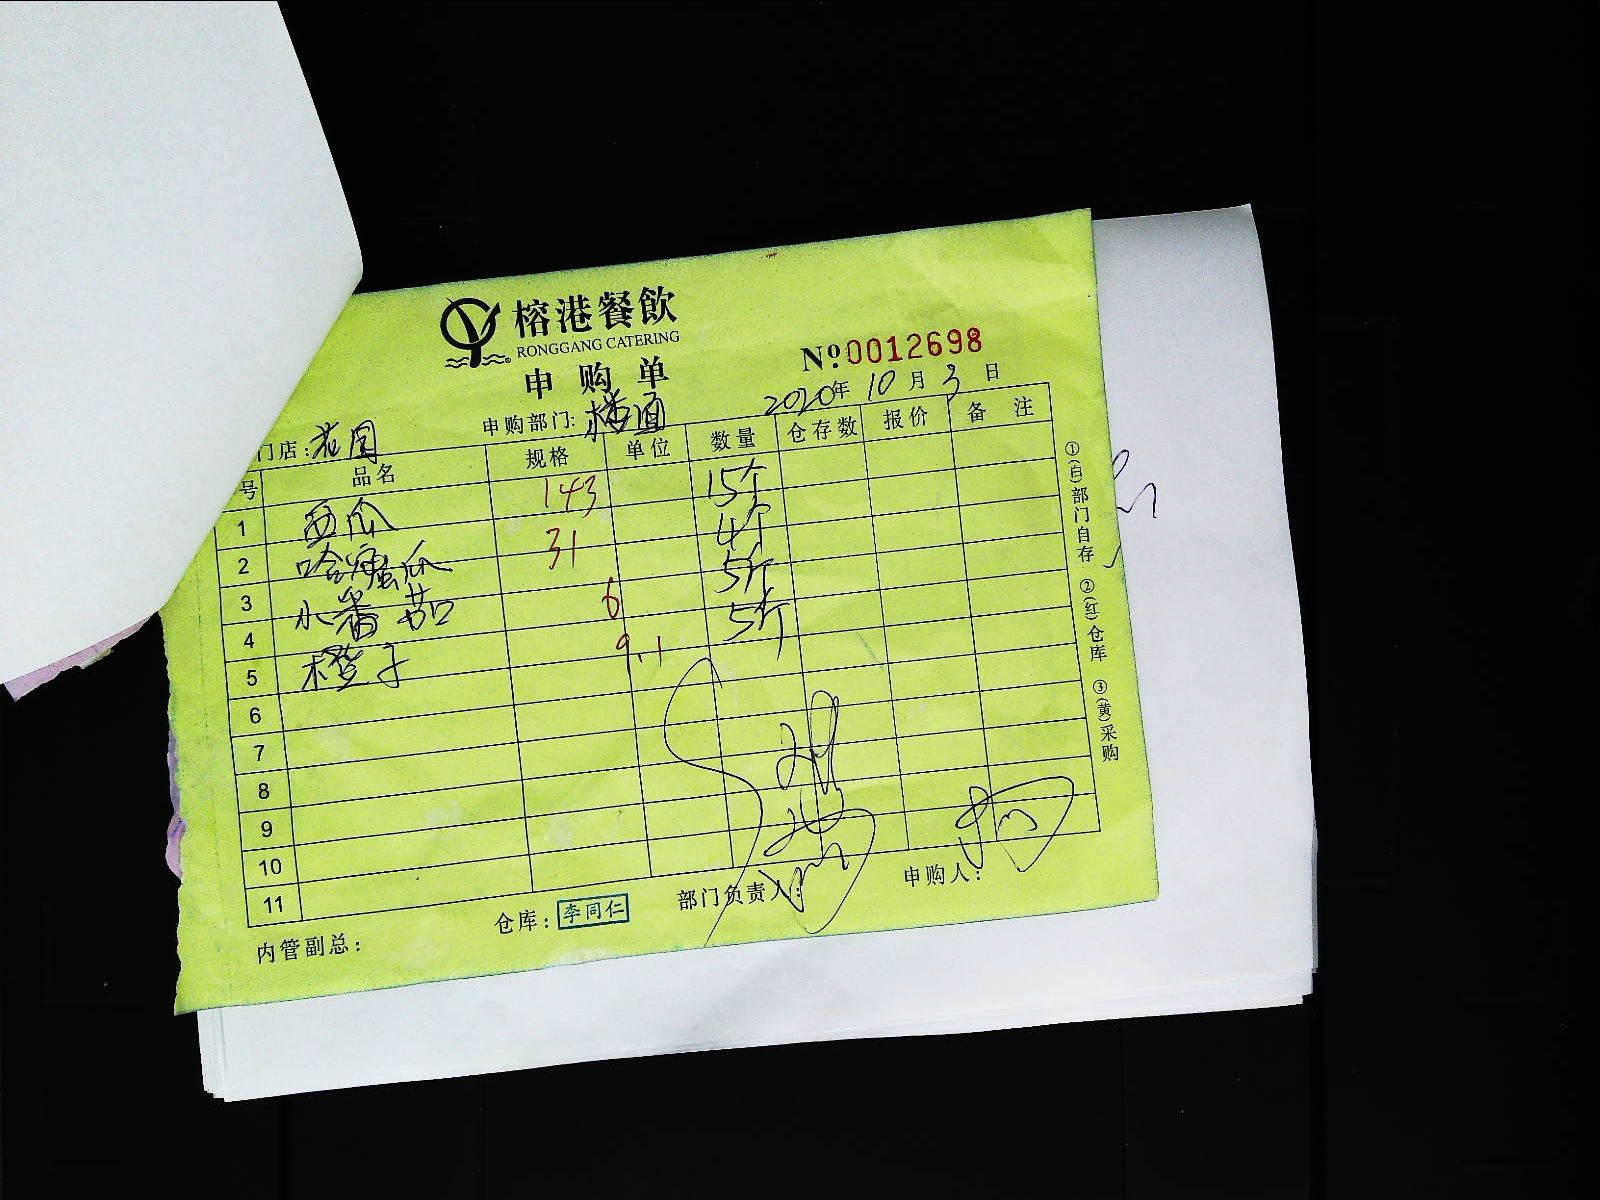 榕港餐飲
RONGGANG CATERING
申购单
№0012698
2020年 10月 3日
门店: 花园 申购部门: 楼面
号 品名 规格 单位 数量 仓存数 报价 备注
1 西瓜 143 15个
2 哈密瓜 31 4个
3 小番茄 6 5斤
4 橙子 9.1 5斤
5
6
7
8
9
10
11
①(白)部门自存 ②(红)仓库 ③(黄)采购
内管副总: 仓库: 李同仁 部门负责人: 申购人: